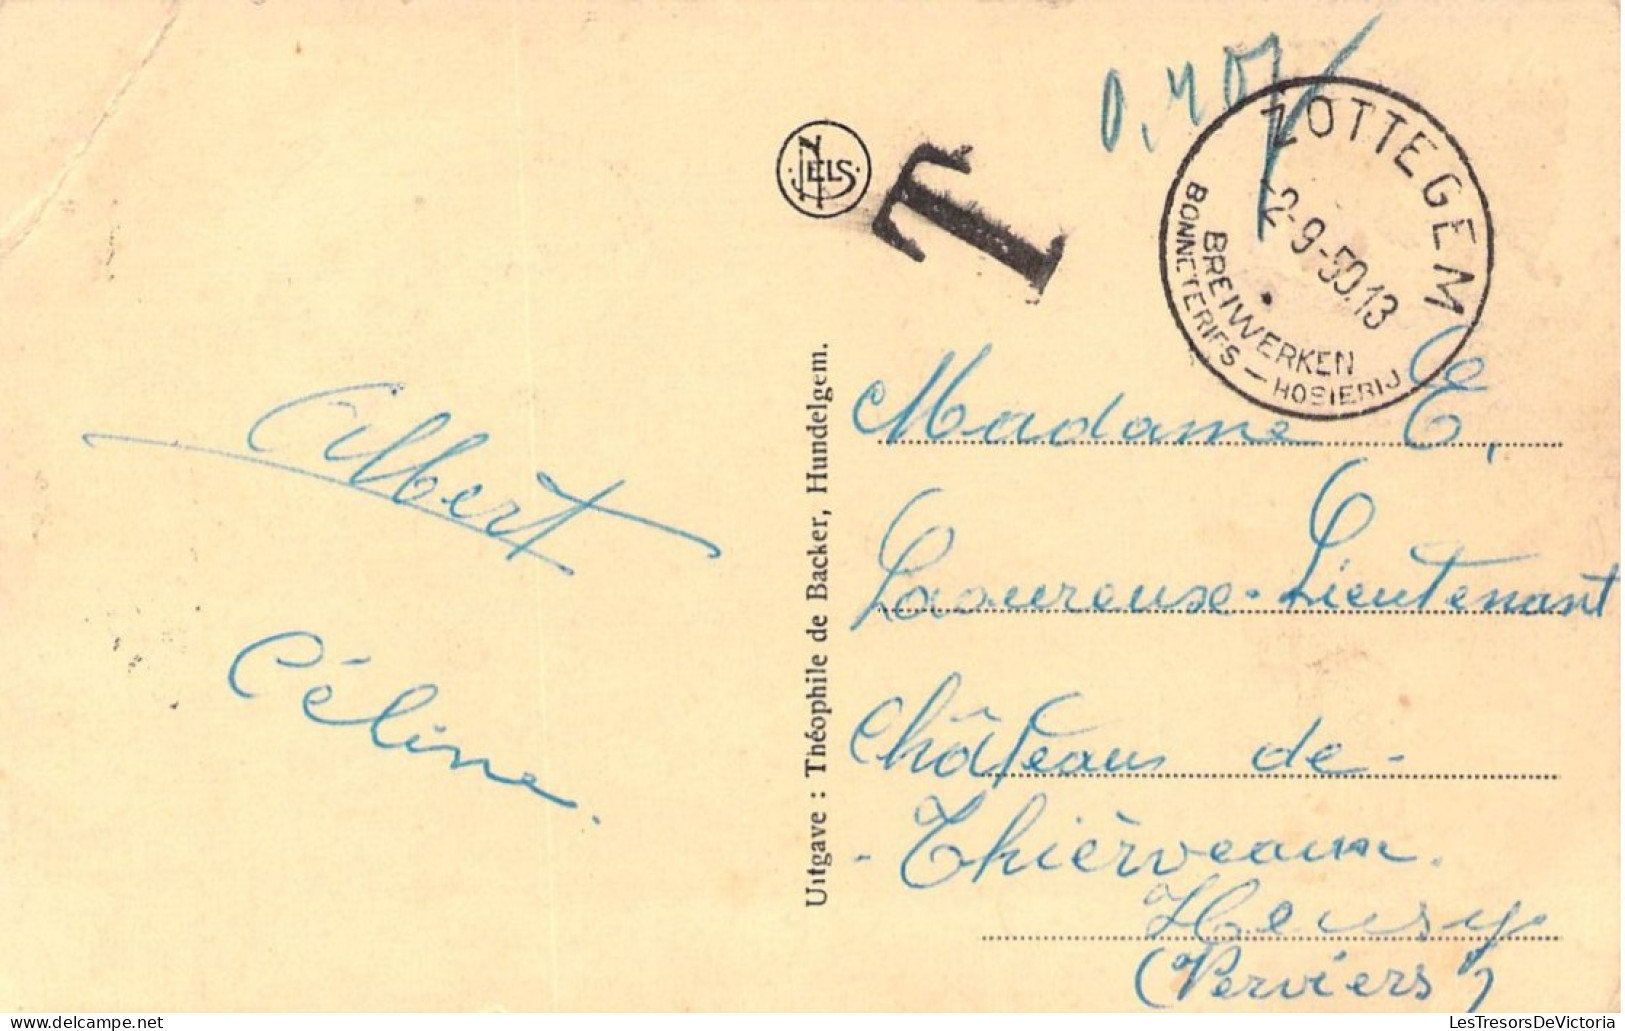 0,40
ZOTTEGEM
-2-9-50.13
BREIWERKEN
BONNETERIES — HOSIERIJ
NELS
T
Albert
Céline.
Uitgave : Théophile de Backer, Hundelgem.
Madame E.
Laoureuse-Lieutenant
Château de-
- Thiervaux.
Heusy
(Verviers)
LesTresorsDeVictoria